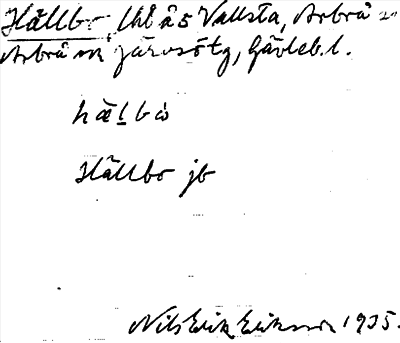 Hällbo, lht å s Vallsta, Arbrå sn
Arbrå sn Järvsö tg, Gävleb. l.
hälbo
Hällbo jb
Nils Erik Eriksson 1935.